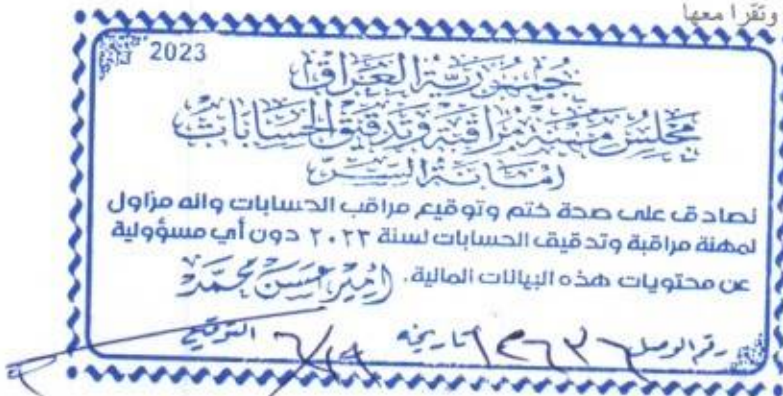 وتقرا معها
2023
جمهورية العراق
مجلس مهنة مراقبة وتدقيق الحسابات
امانة السر
نصادق على صحة ختم وتوقيع مراقب الحسابات وانه مزاول
لمهنة مراقبة وتدقيق الحسابات لسنة ٢٠٢٣ دون أي مسؤولية
عن محتويات هذه البيانات المالية. امير حسن محمد
رقم الوصل تاريخه ٦/١٩ التوقيع